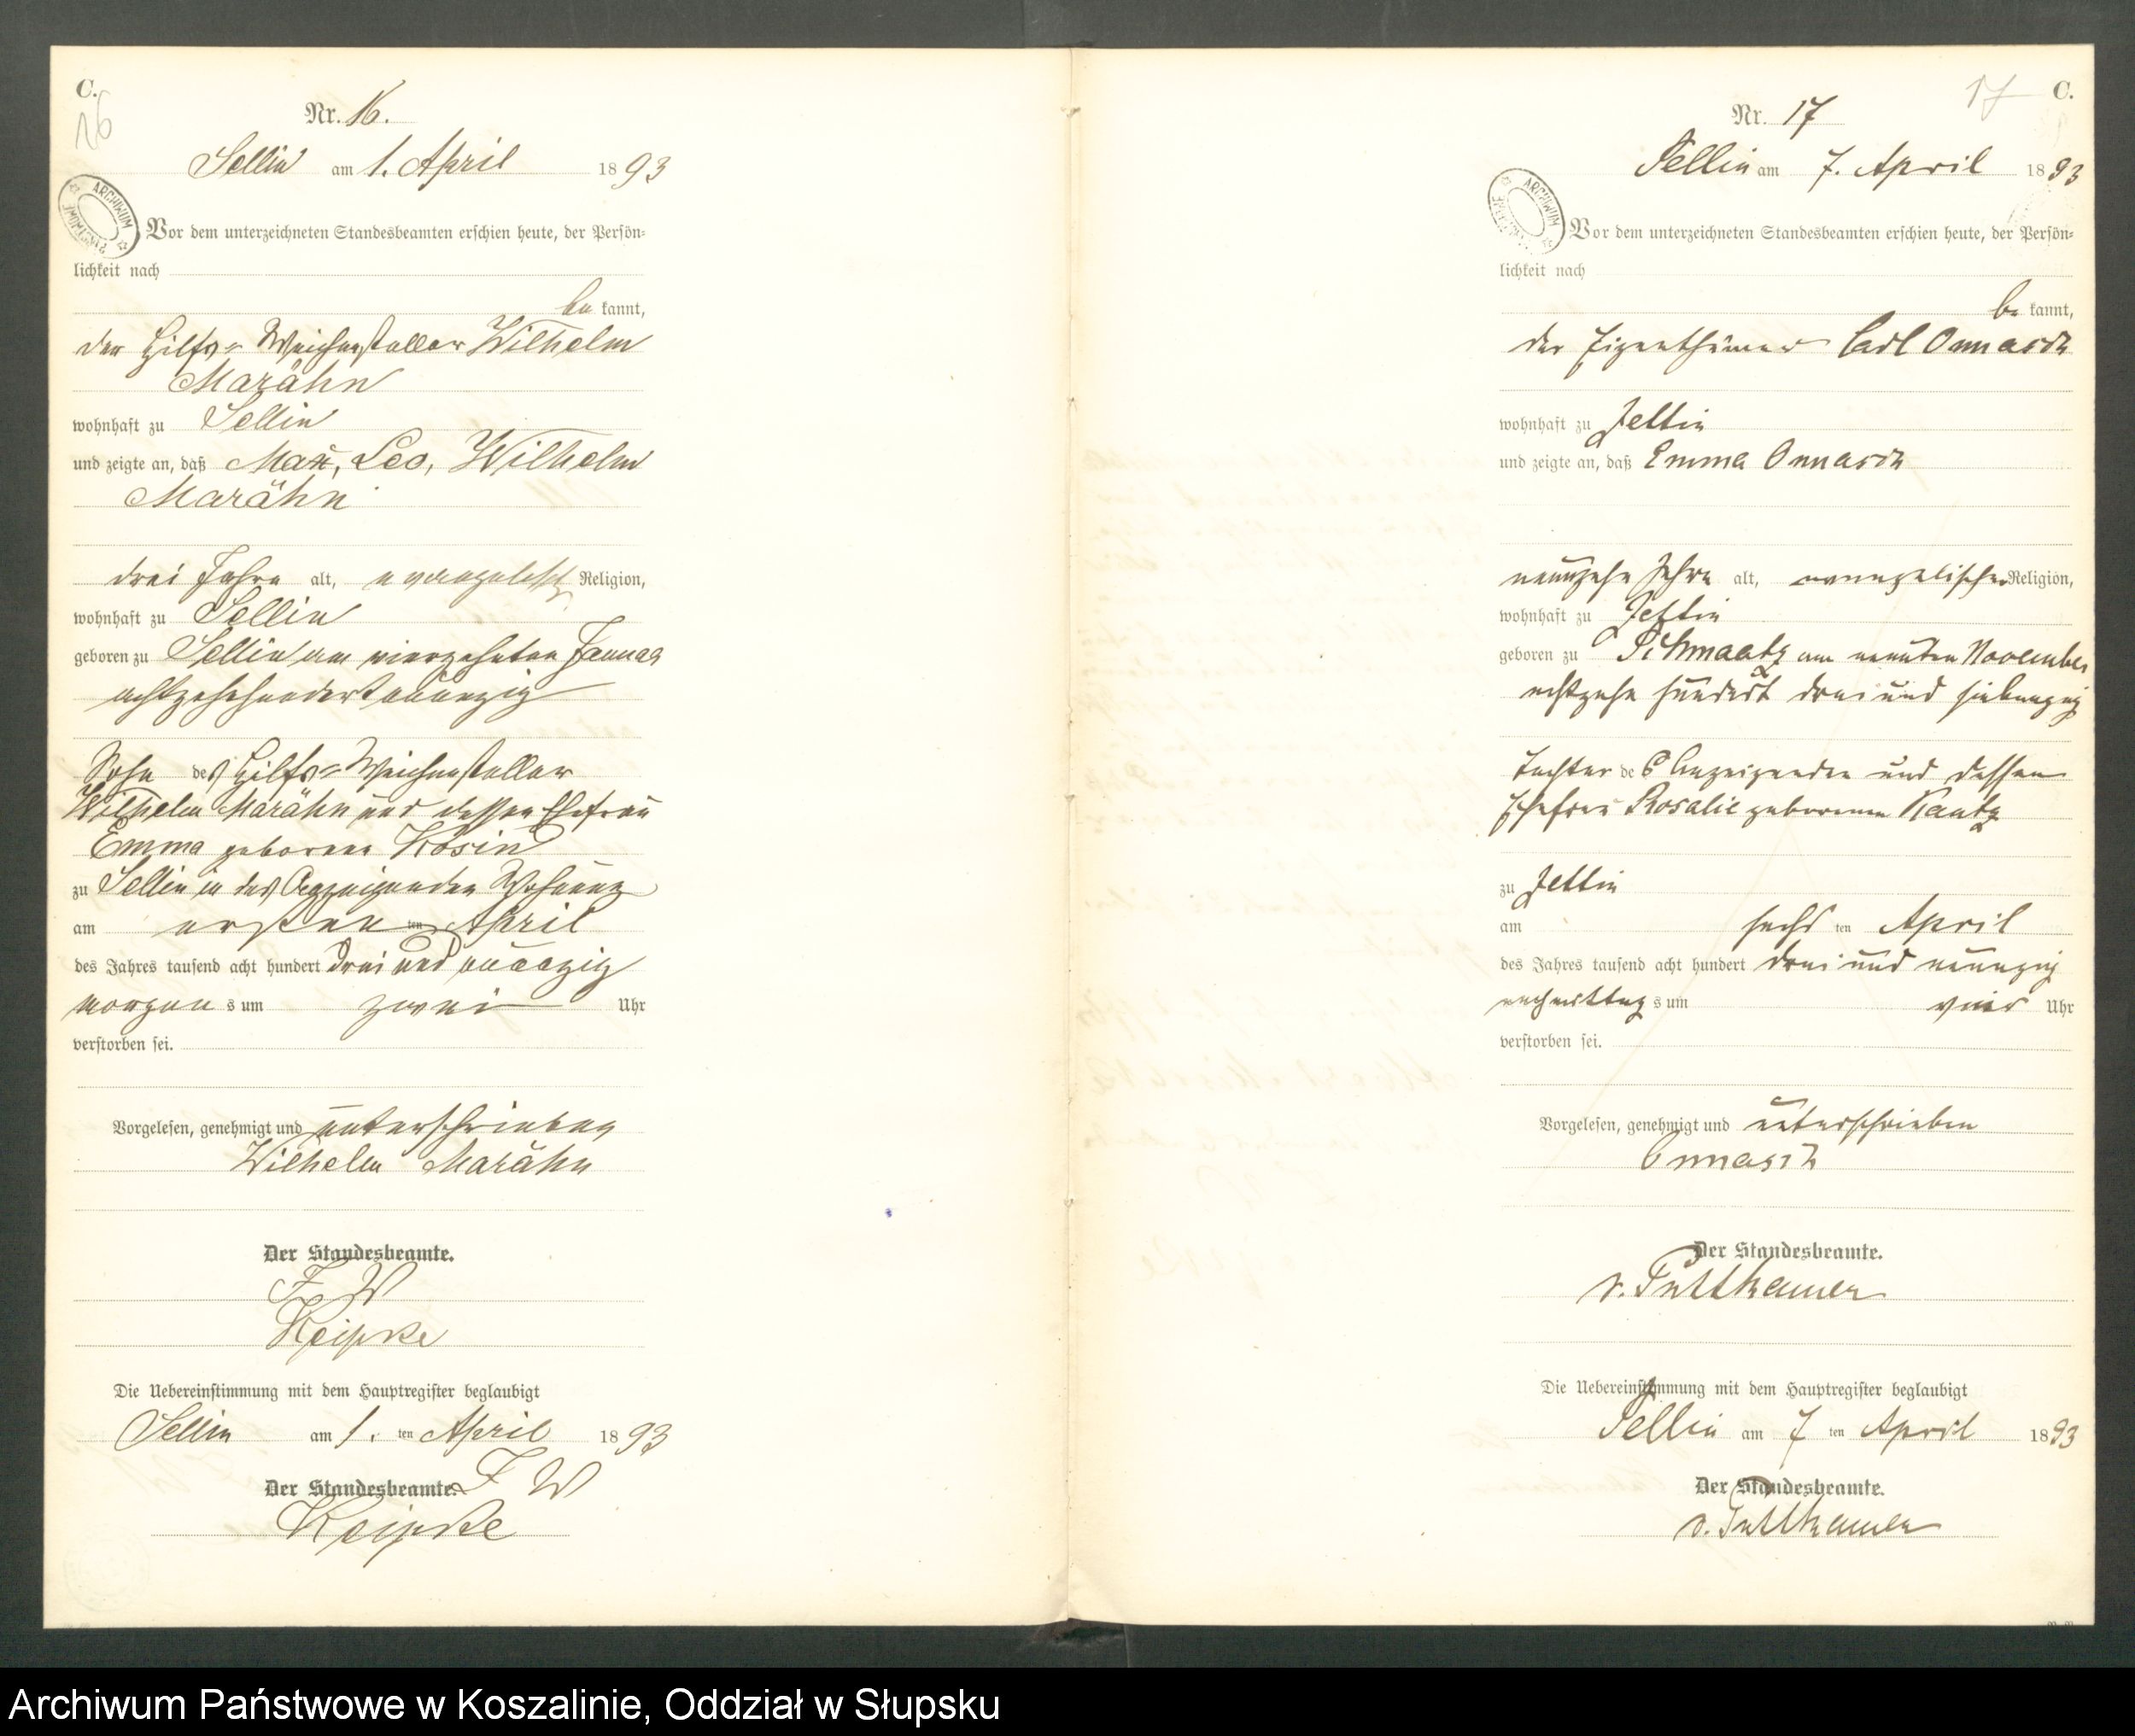 C.
16
Nr. 16.
Sellin am 1. April 1893
ARCHIWUM PAŃSTWOWE
Vor dem unterzeichneten Standesbeamten erschien heute, der Persön-
lichkeit nach
be kannt,
der Hilfs-Weichensteller Wilhelm
Marähn
wohnhaft zu Sellin
und zeigte an, daß Max, Leo, Wilhelm
Marähn
drei Jahre alt, evangelisch Religion,
wohnhaft zu Sellin
geboren zu Sellin am vierzehnten Januar
achtzehnhundertneunzig
Sohn des Hilfs-Weichensteller
Wilhelm Marähn und dessen Ehefrau
Emma geborene Kosin
zu Sellin in des Anzeigenden Wohnung
am ersten ten April
des Jahres tausend acht hundert drei und neunzig
morgens um zwei Uhr
verstorben sei.
Vorgelesen, genehmigt und unterschrieben
Wilhelm Marähn
Der Standesbeamte.
Die Uebereinstimmung mit dem Hauptregister beglaubigt
Sellin am 1. ten April 1893
Der Standesbeamte.
17 C.
Nr. 17
Sellin am 7. April 1893
ARCHIWUM PAŃSTWOWE
Vor dem unterzeichneten Standesbeamten erschien heute, der Persön-
lichkeit nach
be kannt,
der Eigenthümer Carl Onnasch
wohnhaft zu
und zeigte an, daß Emma Onnasch
neunzehn Jahre alt, evangelischer Religion,
wohnhaft zu
geboren zu Schmaatz am neunten November
achtzehn hundert drei und siebenzig
Tochter des Anzeigenden und dessen
Ehefrau Rosalie geborenen Kautz
zu
am sechsten April
des Jahres tausend acht hundert drei und neunzig
nachmittags um vier Uhr
verstorben sei.
Vorgelesen, genehmigt und unterschrieben
Onnasch
Der Standesbeamte.
v. Puttkamer
Die Uebereinstimmung mit dem Hauptregister beglaubigt
Sellin am 7 ten April 1893
Der Standesbeamte.
v. Puttkamer
Archiwum Państwowe w Koszalinie, Oddział w Słupsku